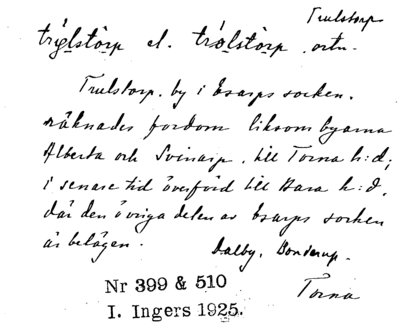 Trulstorp
trýlstòrp el. trólstòrp ortn.
Trulstorp. by i Esarps socken.
räknades fordom liksom byarna
Alberta och Svinarp, till Torna h:d;
i senare tid överförd till Bara h:d,
där den övriga delen av Esarps socken
är belägen.
Dalby, Bonderup.
Nr 399 & 510
I. Ingers 1925.
Torna